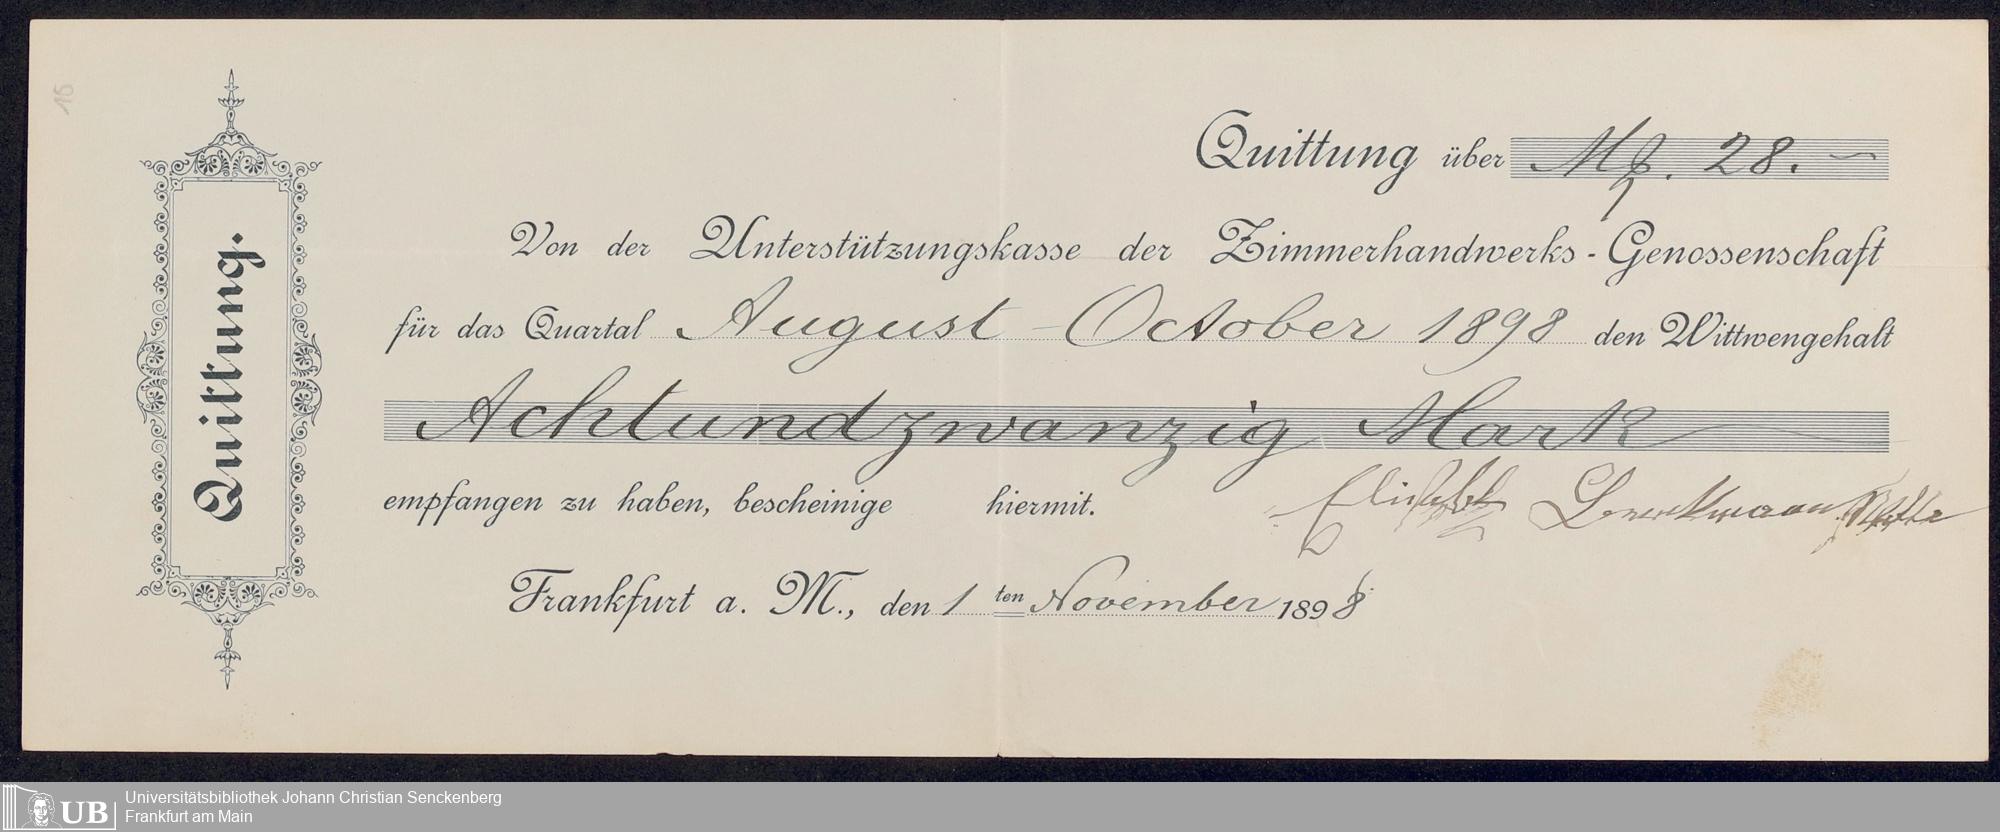 16
Quittung.
Quittung über Mk. 28. —
Von der Unterstützungskasse der Zimmerhandwerks-Genossenschaft
für das Quartal August - October 1898 den Wittwengehalt
Achtundzwanzig Mark
empfangen zu haben, bescheinige hiermit.
Elisabeth
Frankfurt a. M., den 1 ten November 1898
UB
Universitätsbibliothek Johann Christian Senckenberg
Frankfurt am Main